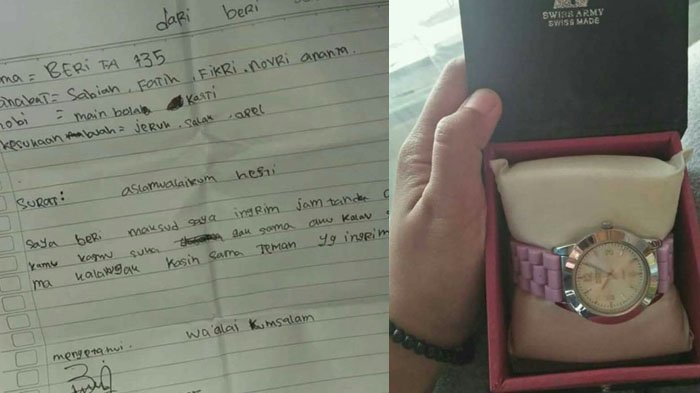 dari beri
ma = BERi TA 135
anabat = Sabiah, Fatih, Fikri, Novri ananta.
hobi = main bola Kasti
kesukaan buah = jeruk, salak, apel
SURAT: aslamualaikum hesti
saya beri maksud saya ingrim jam tanda
kamu kasmu suka gak sama aku kalau
ma kalau gak kasih sama Teman yg ingrim
wa'alai kumsalam
mengetahui.
SWISS ARMY
SWISS MADE